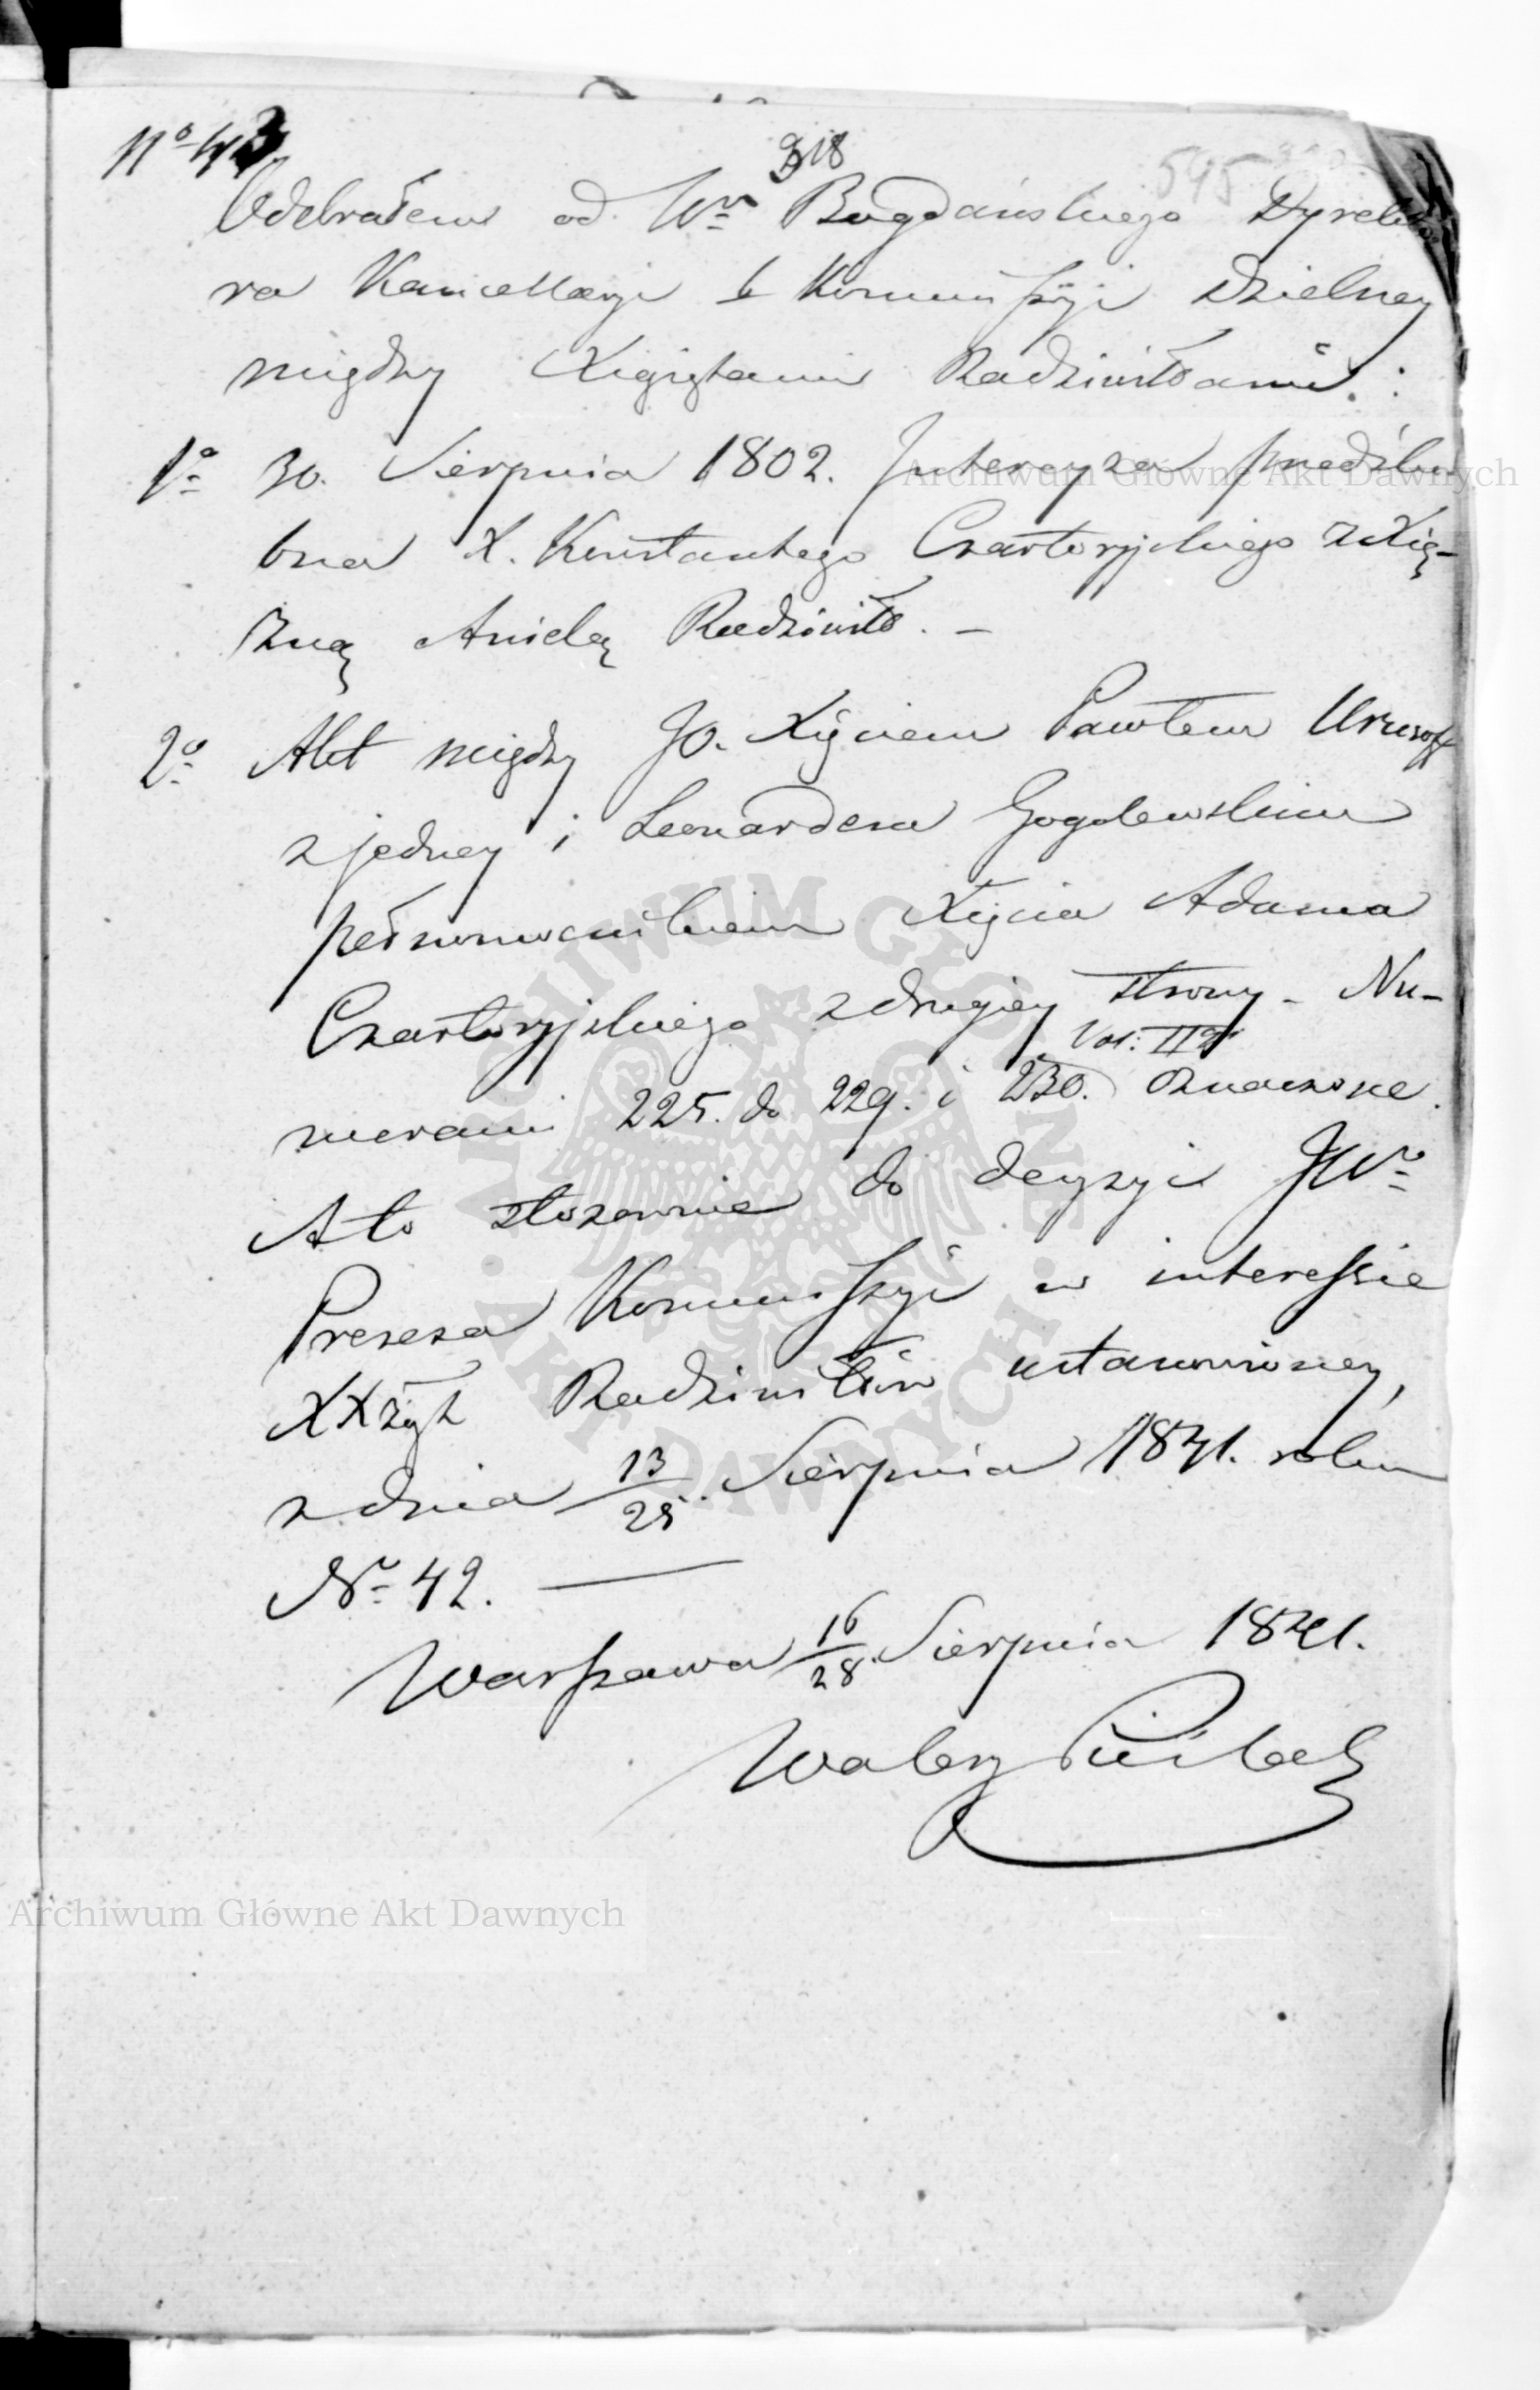 No 43
318
595
Odebrałem od Wo Bogdańskiego Dyrekto
ra Kancellaryi b Kommissyi Dzielney
między Xiążętami Radziwiłłami:
1o 30. Sierpnia 1802. Intercyza przedślu
bna X. Konstantego Czartoryjskiego z Xię-
żną Anielą Radziwiłł. –
2o Akt między JO. Xięciem Pawłem Urusoff
z jedney i Leonardem Gogolewskim
pełnomocnikiem Xięcia Adama
Czartoryjskiego z drugiey strony – Nu-
Vol: II
merami 225. do 229. i 230. oznaczone.
A to stosownie do decyzyi JWo
Prezesa Kommissyi w interessie
XXżąt Radziwiłłów ustanowioney,
z dnia 13/25. Sierpnia 1841. roku
No 42. —
Warszawa 16/28. Sierpnia 1841.
Walery
Archiwum Główne Akt Dawnych
ARCHIWUM GŁÓWNE · AKT DAWNYCH ·
Archiwum Główne Akt Dawnych